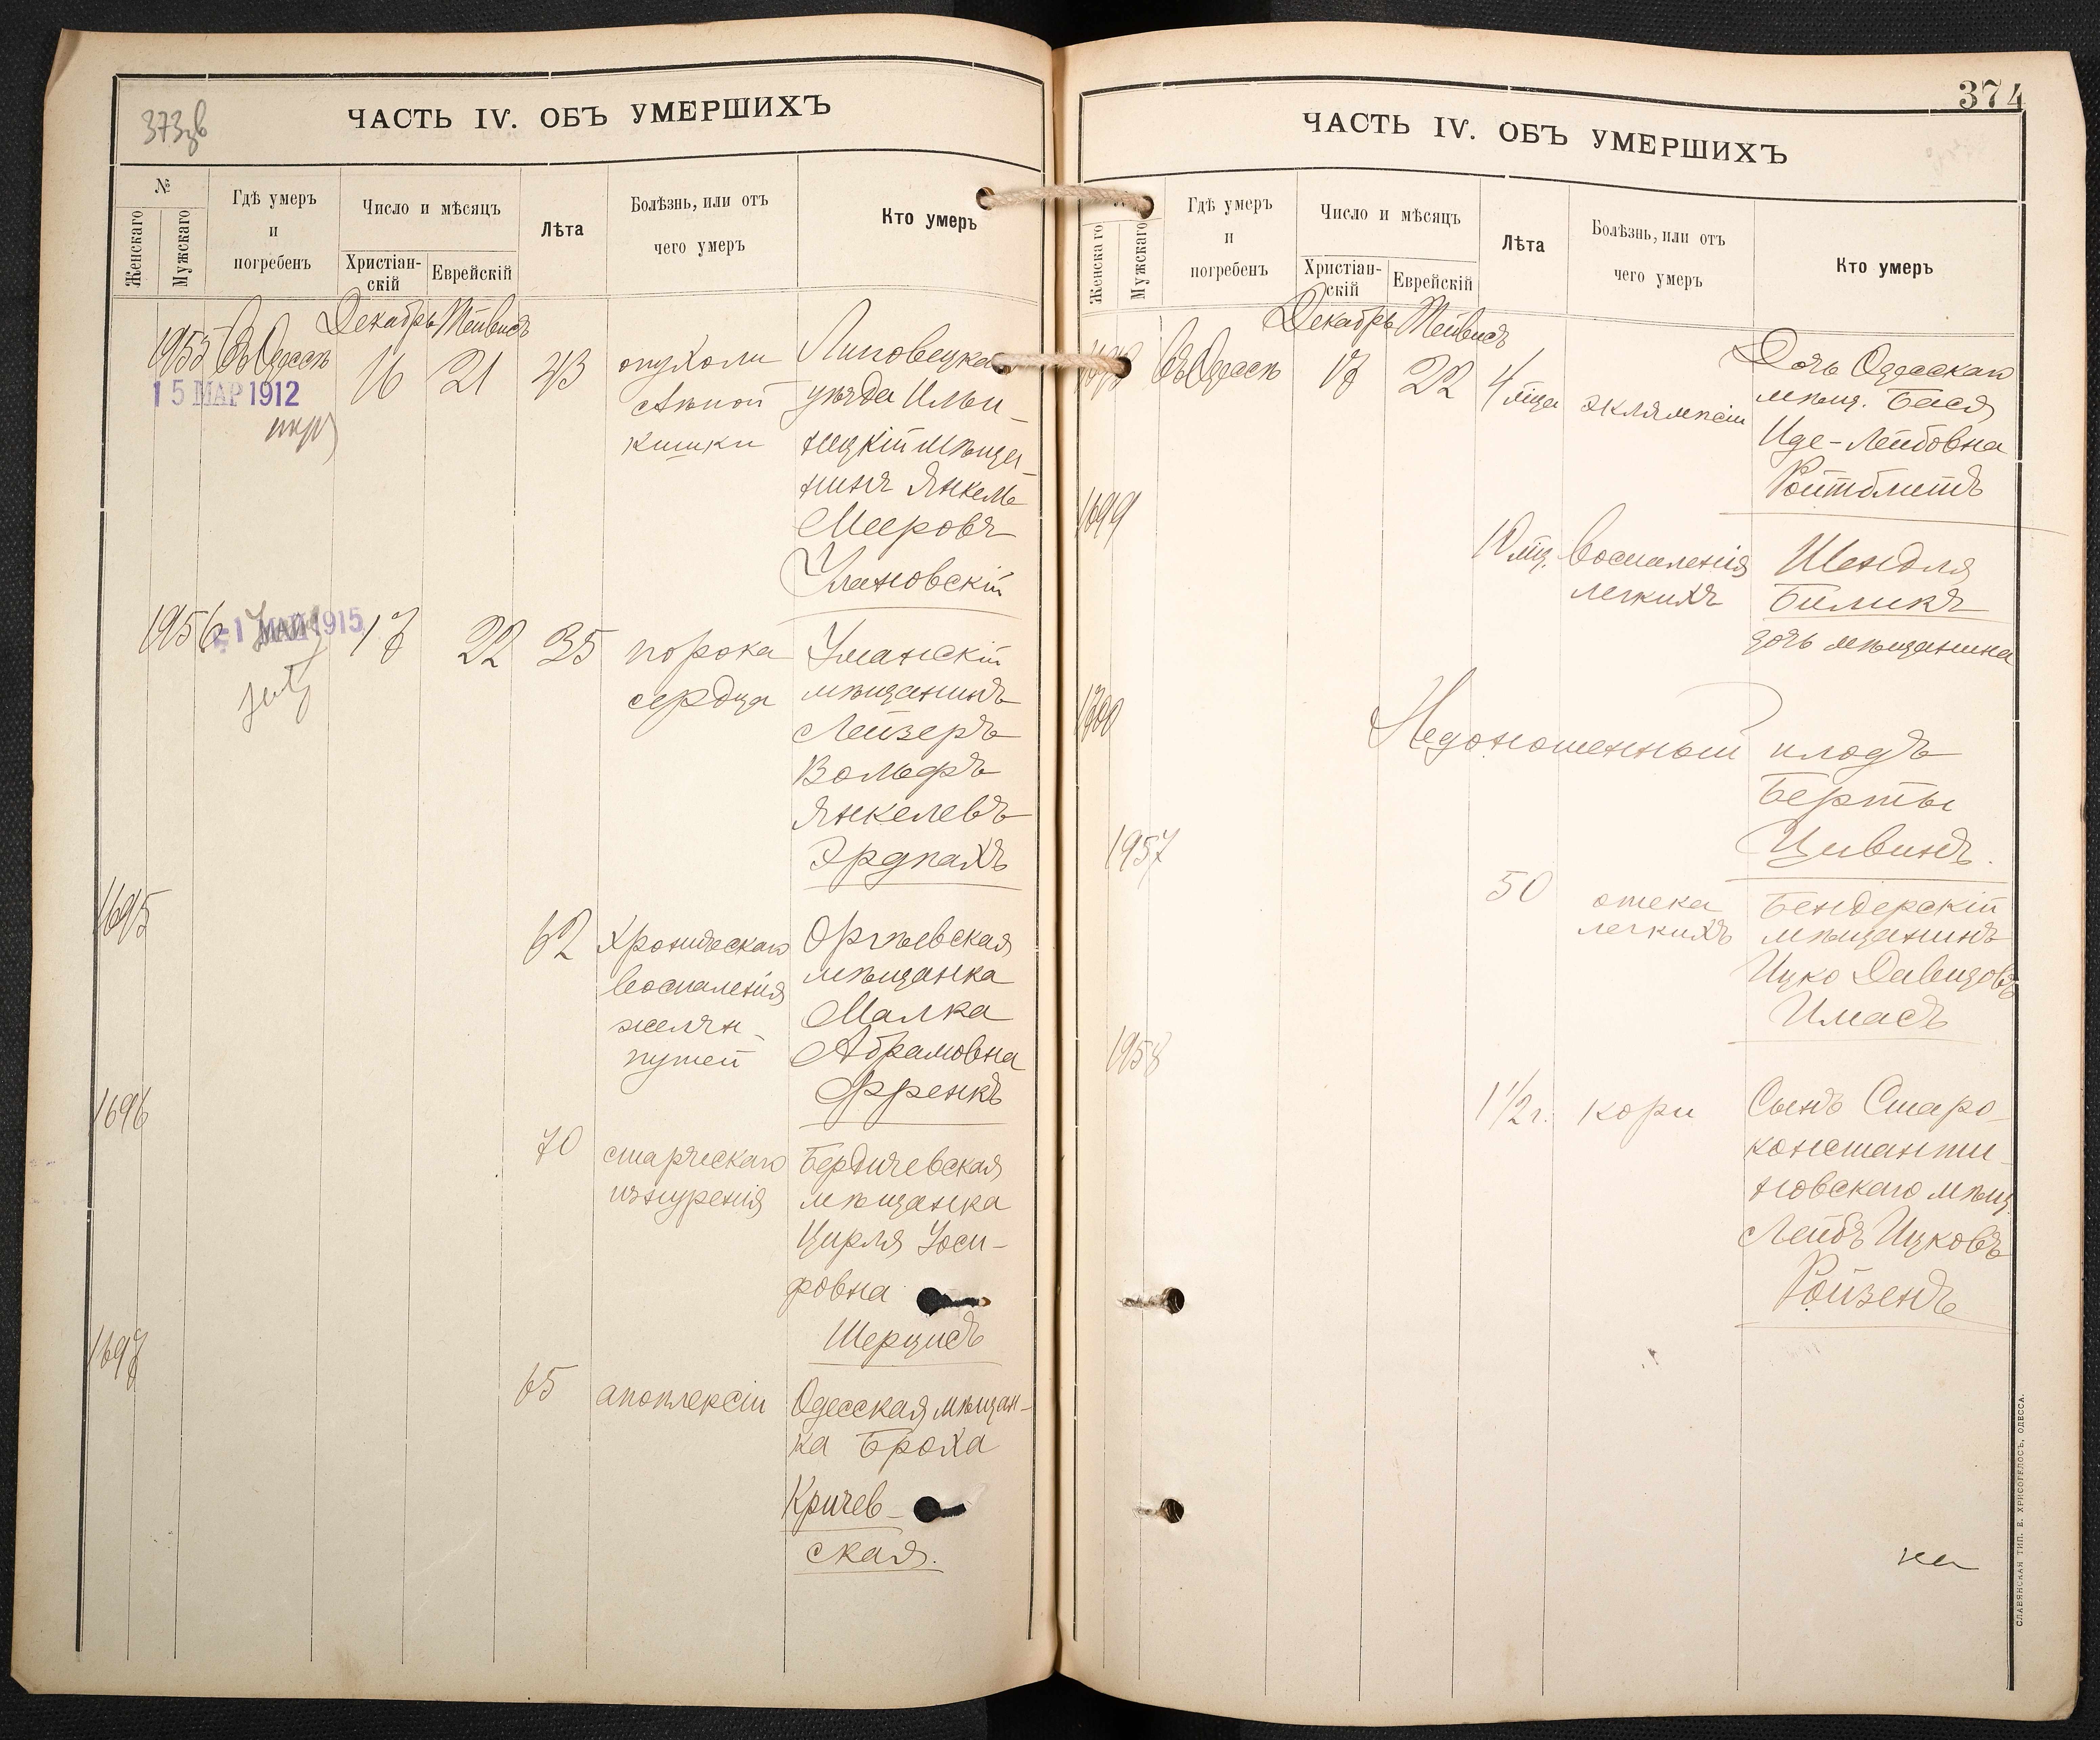 373зв
ЧАСТЬ IV. ОБЪ УМЕРШИХЪ
№
Женскаго
Мужскаго
Гдѣ умеръ
и
погребенъ
Число и мѣсяцъ
Христіан-
скій
Еврейскій
Лѣта
Болѣзнь, или отъ
чего умеръ
Кто умеръ
Декабрь Тейвисъ
1955 Въ Одессѣ 16 21 43
15 МАР 1912
опухоли
слѣпой
кишки
Липовецкаго
уѣзда Ильи-
нецкій мѣща-
нинъ Янкель
Мееровъ
Улановскій
1956 17 22 35
-1 МАЙ 1915
порока
сердца
Уманскій
мѣщанинъ
Лейзеръ
Вольфъ
Янкелевъ
Эрдпахъ
1695 62
Хроническаго
воспаленія
желчн-
путей
Оргѣевская
мѣщанка
Малка
Абрамовна
Френкъ
1696 70
старческаго
изнуренія
Бердичевская
мѣщанка
Цирля Іоси-
фовна
Шерцисъ
1697 65
апоплексіи
Одесская мѣщан-
ка Броха
Кричев-
ская.
374
ЧАСТЬ IV. ОБЪ УМЕРШИХЪ
Женскаго
Мужскаго
Гдѣ умеръ
и
погребенъ
Число и мѣсяцъ
Христіан-
скій
Еврейскій
Лѣта
Болѣзнь, или отъ
чего умеръ
Кто умеръ
Декабрь Тейвисъ
1698 Въ Одессѣ 17 22 4 мца эклямпсіи
Дочь Одесскаго
мѣщ. Бася
Иде-Лейбовна
Ройтблитъ
1699 10 мц.
воспаленія
легкихъ
Шендля
Биликъ
дочь мѣщанина
1700
Недоношенный плодъ
Берты
Цивинъ.
1957 50
отека
легкихъ
Бендерскій
мѣщанинъ
Ицко Давидовъ
Имасъ
1958 1 1/2 г. кори
Сынъ Старо-
константи-
новскаго мѣщ.
Лейбъ Ицковъ
Ройзенъ
СЛАВЯНСКАЯ ТИП. Е. ХРИСОГЕЛОСЪ, ОДЕССА.